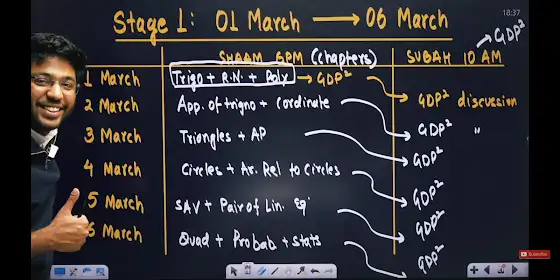 18:37
Stage 1: 01 March → 06 March
→ GDP²
SHAAM 6PM (chapters) SUBAH 10 AM
1 March Trigo + R.N. + Poly → GDP²
2 March App. of trigno + Cordinate GDP² discussion
3 March Triangles + AP GDP² "
4 March Circles + Ar. Rel to Circles GDP²
5 March SAV + Pair of Lin. Eqⁿ GDP²
6 March Quad + Probab + stats GDP²
GDP²
SUBSCRIBE